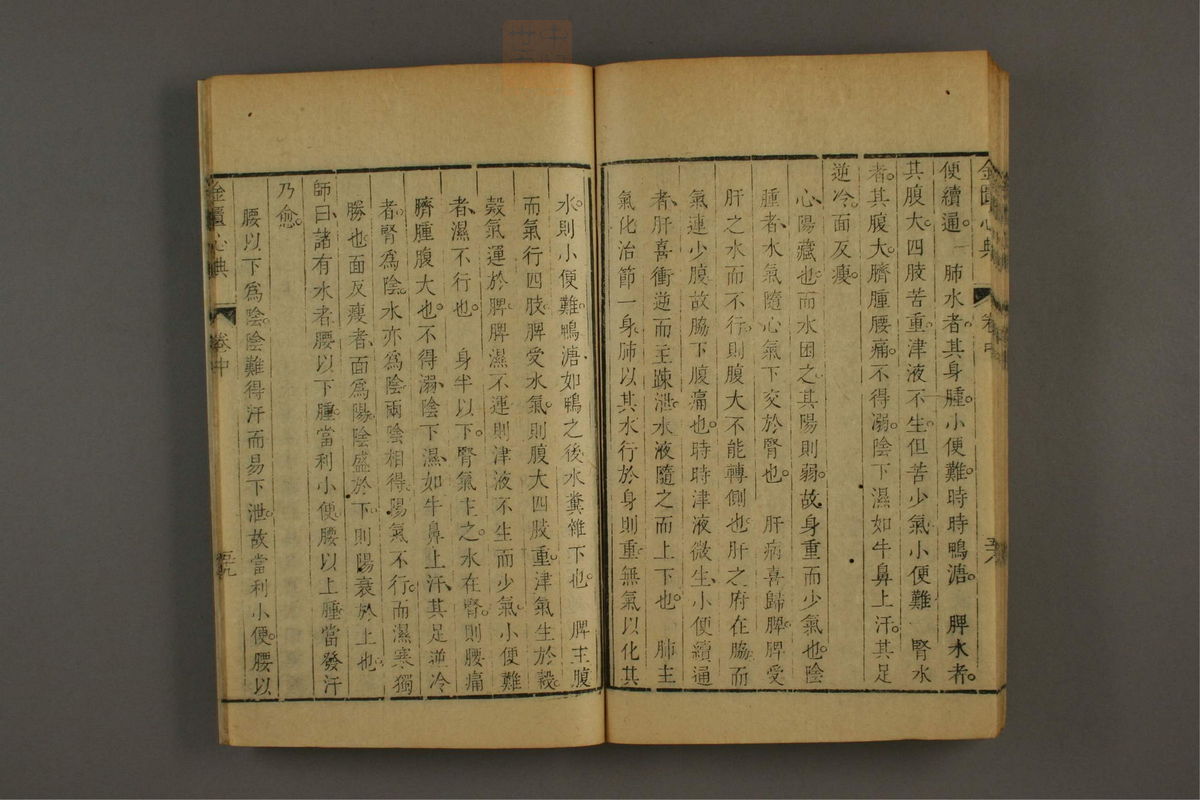 金匱心典 卷中 五八
便續通。 肺水者其身腫。小便難。時時鴨溏。 脾水者。
其腹大。四肢苦重。津液不生。但苦少氣。小便難 腎水
者。其腹大。臍腫腰痛。不得溺。陰下濕如牛鼻上汗。其足
逆冷。面反瘦。
心陽藏也。而水困之。其陽則弱。故身重而少氣也。陰
腫者、水氣隨心氣下交於腎也。 肝病喜歸脾。脾受
肝之水而不行。則腹大不能轉側也。肝之府在脇。而
氣連少腹。故脇下腹痛也。時時津液微生小便續通
者、肝喜衝逆而主疎泄。水液隨之而上下也。 肺主
氣化治節一身。肺以其水行於身則重。無氣以化其
水。則小便難。鴨溏、如鴨之後水糞雜下也。 脾主腹
而氣行四肢。脾受水氣。則腹大四肢重。津氣生於穀。
穀氣運於脾。脾濕不運則津液不生而少氣。小便難
者、濕不行也。 身半以下。腎氣主之。水在腎。則腰痛
臍腫腹大也。不得溺、陰下濕如牛鼻上汗、其足逆冷
者。腎爲陰。水亦爲陰。兩陰相得。陽氣不行。而濕寒獨
勝也。面反瘦者、面爲陽。陰盛於下。則陽衰於上也。
師曰、諸有水者。腰以下腫。當利小便。腰以上腫當發汗
乃愈。
腰以下爲陰。陰難得汗而易下泄。故當利小便。腰以
金匱心典 卷中 五九